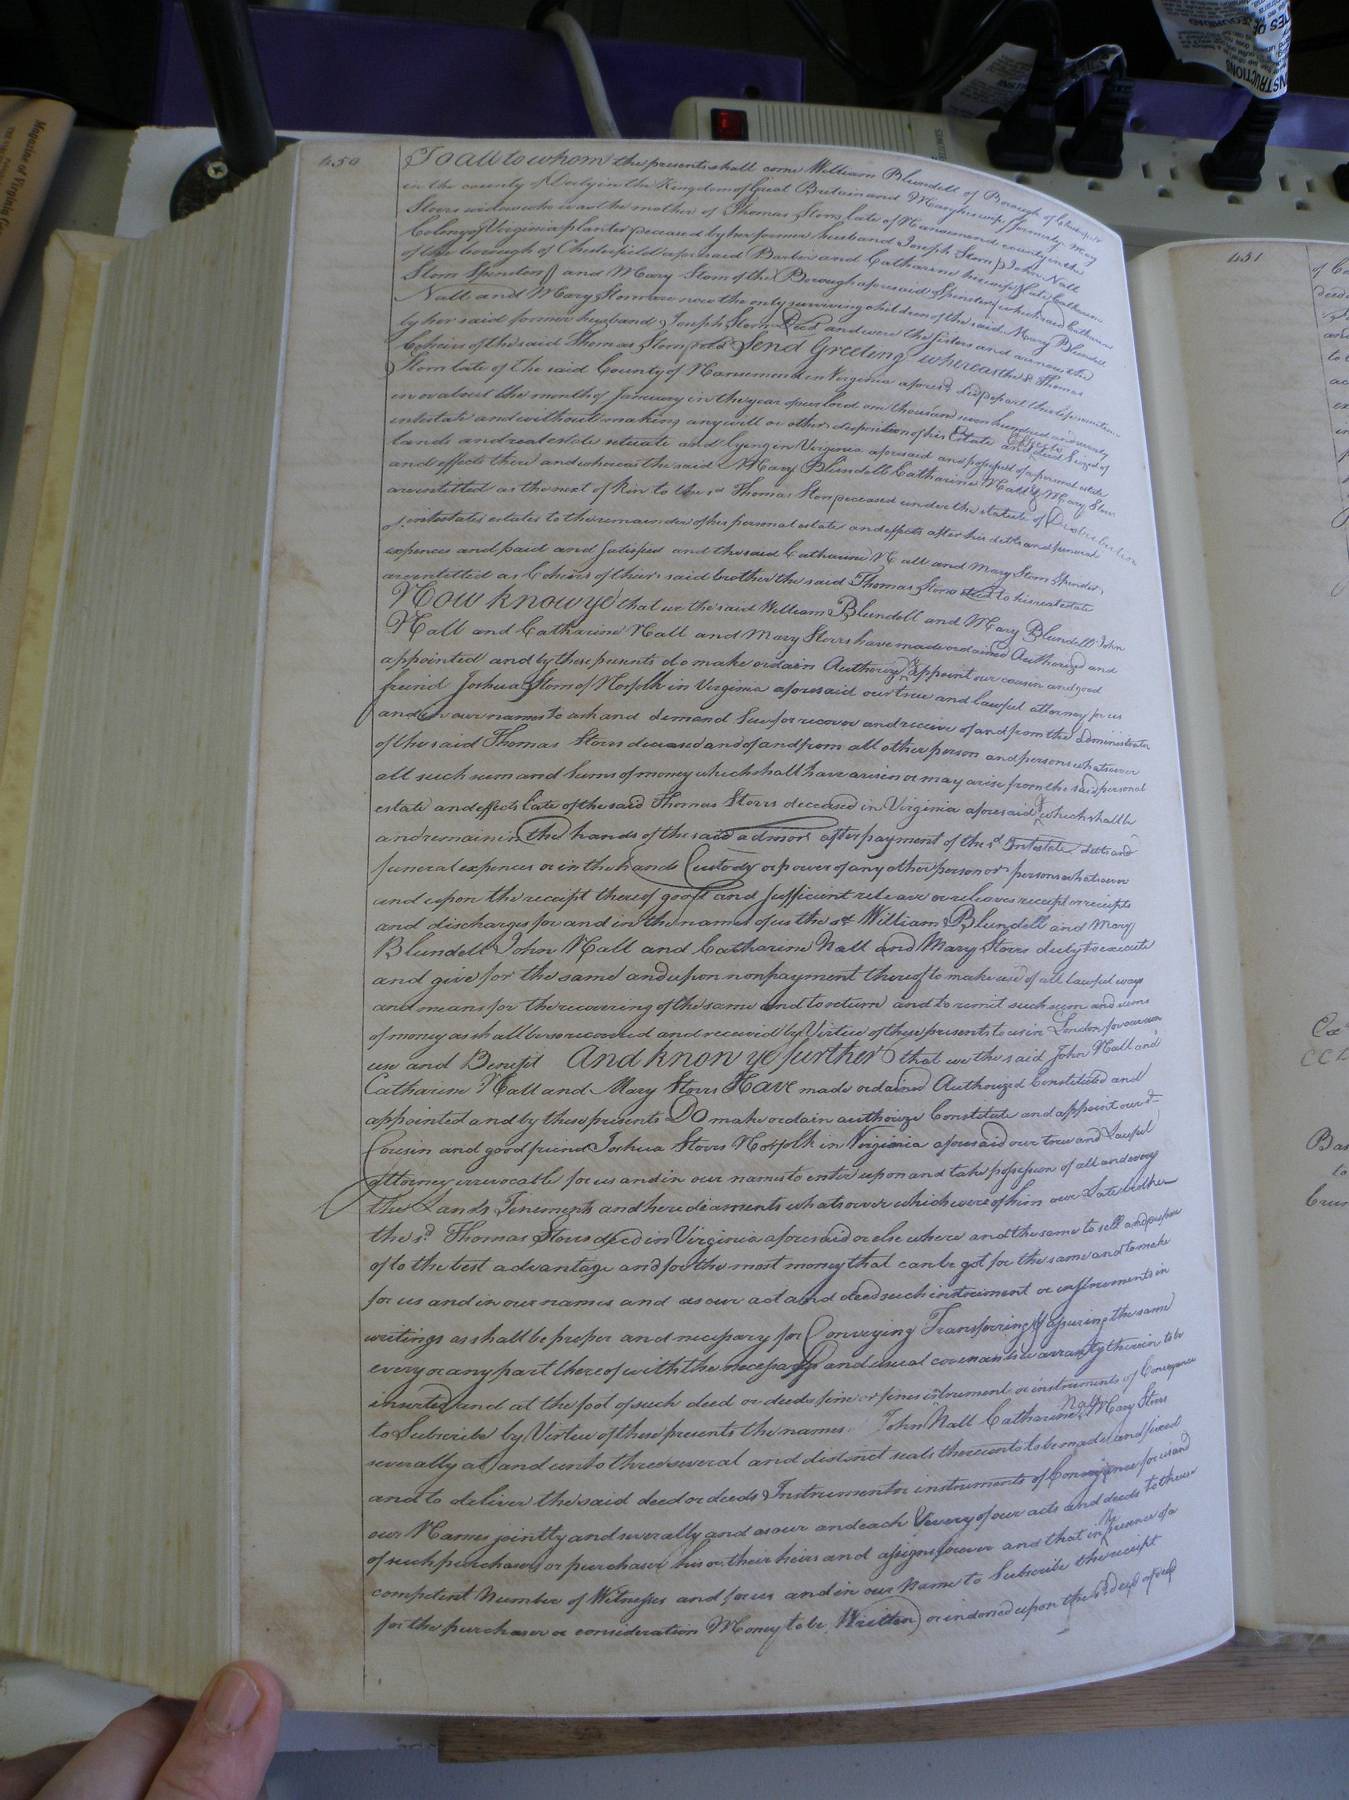 450
To all to whom the presents shall come William Blundell of Borough of
in the county of Derby in the Kingdom of Great Britain and Mary his wife formerly Mary
Storrs widow who was the mother of Thomas Storrs late of Nansemond county in the
Colony of Virginia planter deceased by her former husband Joseph Storrs John Nall
of the borough of Chesterfield aforesaid Barber and Catharine his wife late Catharine
Storrs Spinster and Mary Storrs of the Borough aforesaid Spinster which said Catharine
Nall and Mary Storrs are now the only surviving children of the said Mary Blundell
by her said former husband Joseph Storrs Decd and were the sisters and are now the
Coheirs of the said Thomas Storrs Send Greeting whereas the sd Thomas
Storrs late of the said County of Nansemond in Virginia aforesd did depart this life
in or about the month of January in the year of our lord one thousand seven hundred and
intestate and without making any will or other disposition of his Estate and Effects
lands and real estate situate and lying in Virginia aforesaid and possessed of a personal estate
and effects there and whereas the said Mary Blundell Catharine Nall & Mary Storrs
are entitled as the next of kin to the sd Thomas Storrs deceased under the statute of Distribution
of intestates estates to the remainder of his personal estate and effects after his debts and funeral
expences and paid and satisfied and the said Catharine Nall and Mary Storrs Spinster
are entitled as Coheirs of their said brother the said Thomas Storrs to his real estate
Now know ye that we the said William Blundell and Mary Blundell John
Nall and Catharine Nall and Mary Storrs have made ordained Authorized and
appointed and by these presents do make ordain Authorize & appoint our cousin and good
freind Joshua Storrs of Norfolk in Virginia aforesaid our true and lawful attorney for us
and in our names to ask and demand Sue for recover and receive of and from the administrator
of the said Thomas Storrs deceased and of and from all other person and persons whatsoever
all such sum and Sums of money which shall have arisen or may arise from the said personal
estate and effects late of the said Thomas Storrs deceased in Virginia aforesaid & which shall be
and remain in the hands of the said admors after payment of the sd Intestate debts and
funeral expences or in the hands Custody or power of any other person or persons whatsoever
and upon the receipt thereof good and sufficient release or releases receipt or receipts
and discharges for and in the names of us the sd William Blundell and Mary
Blundell John Nall and Catharine Nall and Mary Storrs duly to execute
and give for the same and upon nonpayment thereof to make use of all lawful ways
and means for the recovering of the same and to return and to remit such sum and sums
of money as shall be so recovered and received by Virtue of these presents to us in London for our own
use and Benefit And know ye further that we the said John Nall and
Catharine Nall and Mary Storrs Have made ordained Authorized Constituted and
appointed and by these presents Do make ordain authorize Constitute and appoint our sd
Cousin and good friend Joshua Storrs Norfolk in Virginia aforesaid our true and Lawful
Attorney irrevocable for us and in our names to enter upon and take possession of all and every
the Lands Tenements and herediaments whatsoever which were of him our Late brother
the sd Thomas Storrs decd in Virginia aforesaid or else where and the same to sell and dispose
of to the best advantage and for the most money that can be got for the same and to make
for us and in our names and as our act and deed such instrument or instruments in
writings as shall be proper and necessary for Conveying Transferring & assuring the same
every or any part thereof with the necessary and usual covenants warranty therein to be
inserted and at the foot of such deed or deeds fine or fines intrument or instruments of Conveyance
to Subscribe by Virtue of these presents the names John Nall Catharine Nall Mary Storrs
severally at and unto three several and distinct seals thereunto to be made and fixed
and to deliver the said deed or deeds Instrument or instruments of Conveyance for us and
our Names jointly and severally and as our and each & every of our acts and deeds to the use
of such purchaser or purchaser his or their heirs and assigns forever and that in the presence of a
competent Number of Witnesses and for us and in our Name to Subscribe the receipt
for the purchase or consideration Money to be Written or indorsed upon the sd deed
451
Magazine of Virginia
INSTRUCTIONS